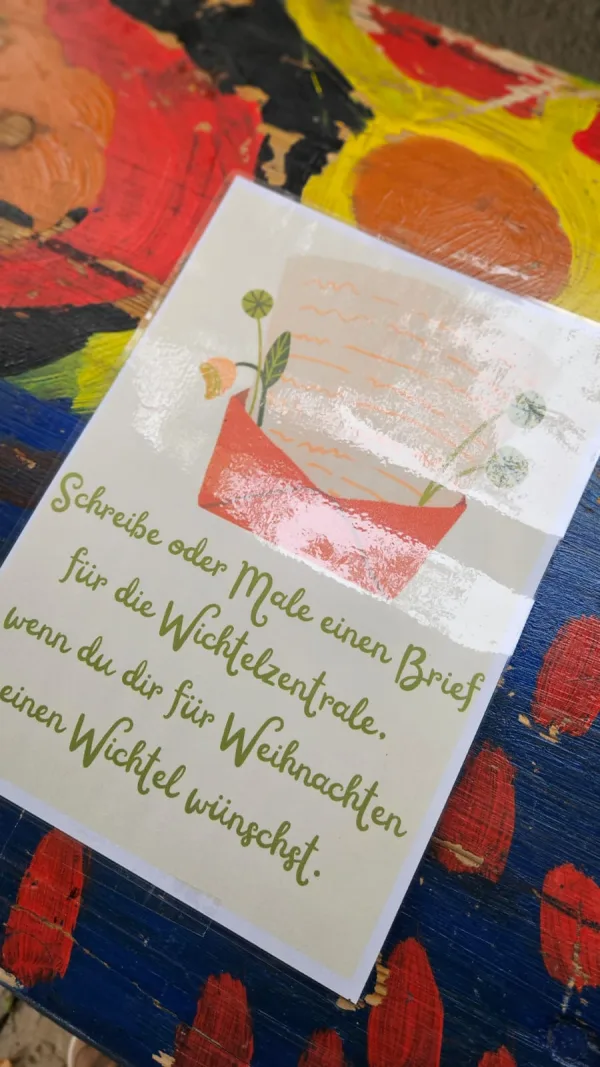 Schreibe oder Male einen Brief
für die Wichtelzentrale,
wenn du dir für Weihnachten
einen Wichtel wünschst.